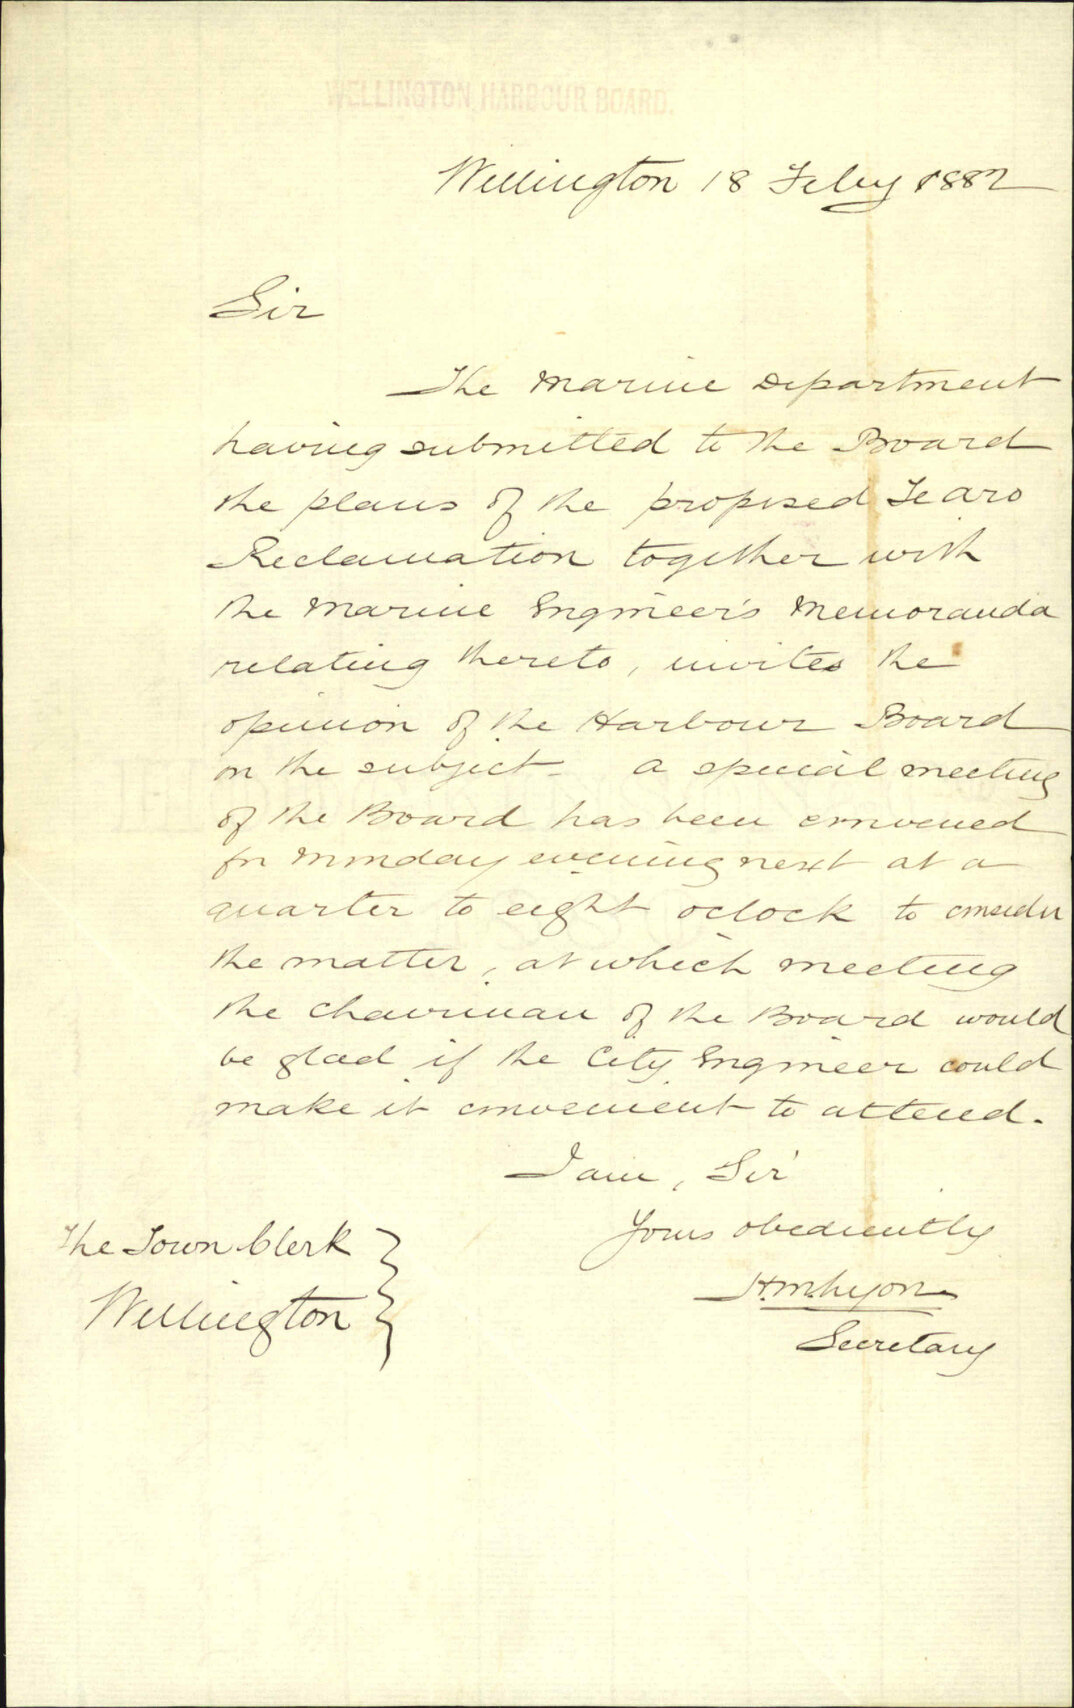 WELLINGTON HARBOUR BOARD.
Wellington 18 Feby 1882
Sir
The Marine Department
having submitted to the Board
the plans of the proposed Te aro
Reclamation together with
the Marine Engineer's Memoranda
relating thereto, invites the
opinion of the Harbour Board
on the subject. A special meeting
of the Board has been convened
for Monday evening next at a
quarter to eight oclock to consider
the matter, at which meeting
the Chairman of the Board would
be glad if the City Engineer could
make it convenient to attend.
I am, Sir
Yours obediently
H.M. Lyon
Secretary
The Town Clerk
Wellington